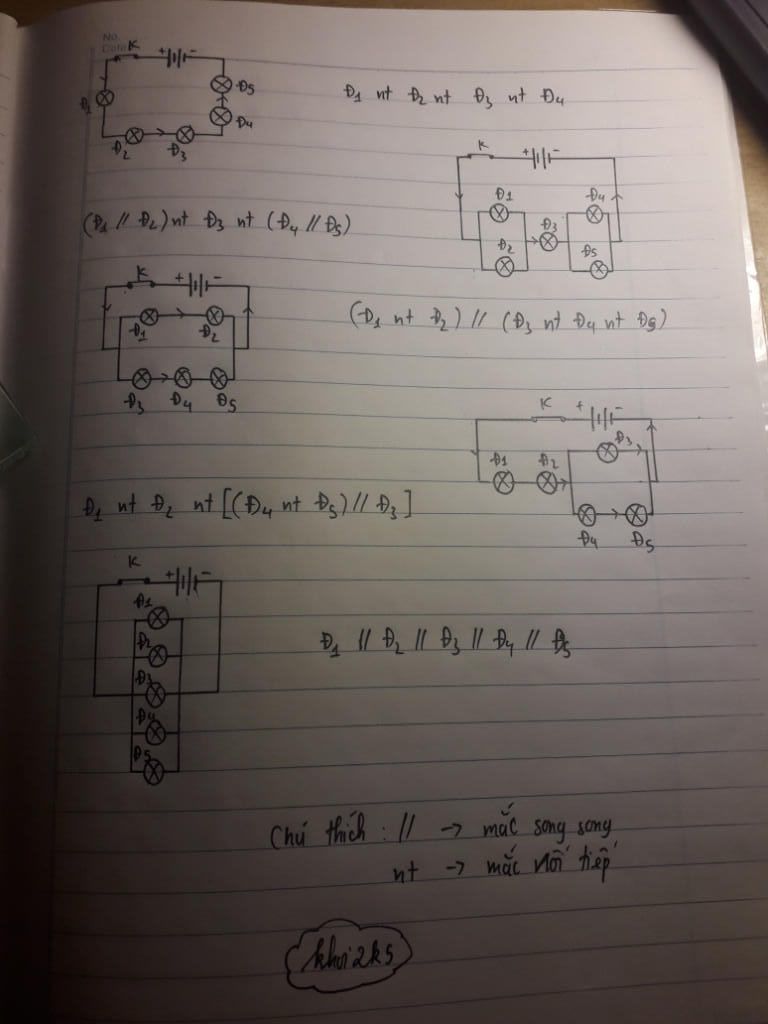 No.
Date
K + -
Đ1 Đ5
Đ4
Đ2 Đ3
Đ1 nt Đ2 nt Đ3 nt Đ4
K + -
Đ1 Đ4
Đ3
Đ2 Đ5
(Đ1 // Đ2) nt Đ3 nt (Đ4 // Đ5)
K + -
Đ1 Đ2
Đ3 Đ4 Đ5
(Đ1 nt Đ2) // (Đ3 nt Đ4 nt Đ5)
K + -
Đ3
Đ1 Đ2
Đ4 Đ5
Đ1 nt Đ2 nt [(Đ4 nt Đ5) // Đ3]
K + -
Đ1
Đ2
Đ3
Đ4
Đ5
Đ1 // Đ2 // Đ3 // Đ4 // Đ5
Chú thích : // -> mắc song song
nt -> mắc nối tiếp
khoi2k5